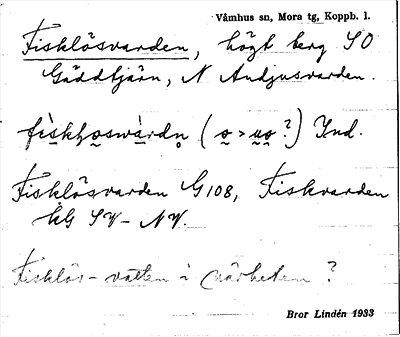 Våmhus sn, Mora tg, Koppb. l.
Fisklösvarden, högt berg SO
Gäddtjärn, N Andjusvarden.
( o > uo ? ) Ind.
Fisklösvarden G108, Fiskvarden
kG SV – NV.
Fisklös-vatten i närheten ?
Bror Lindén 1933